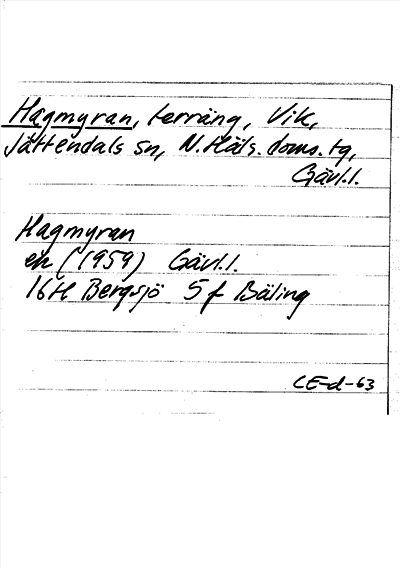 Hagmyran, terräng, Vik,
Jättendals sn, N. Häls. doms. tg,
Gävl.l.
Hagmyran
ek (1959) Gävl.l.
16H Bergsjö 5f Bäling
CE-d-63